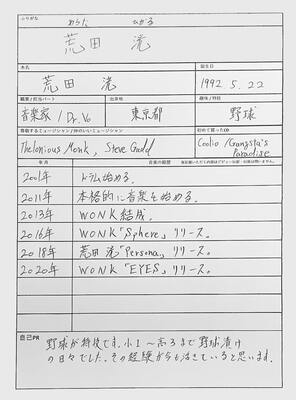 ふりがな
あらた ひかる
荒田 洸
本名
生年月日
荒田 洸
1992. 5. 22
職業 / 担当パート
出身地
趣味 / 特技
音楽家 / Dr. Vo
東京都
野球
尊敬するミュージシャン / 仲のいいミュージシャン
初めて買ったCD
Thelonious Monk, Steve Gadd
Coolio / Gangsta's
Paradise
年月
音楽の経歴
2001年 ドラム始める。
2011年 本格的に音楽を始める。
2013年 WONK 結成。
2016年 WONK「Sphere」リリース。
2018年 荒田 洸「Persona.」リリース。
2020年 WONK「EYES」リリース。
自己PR
野球が特技です。小1〜高3まで野球漬け
の日々でした。その経験が今も活きていると思います。